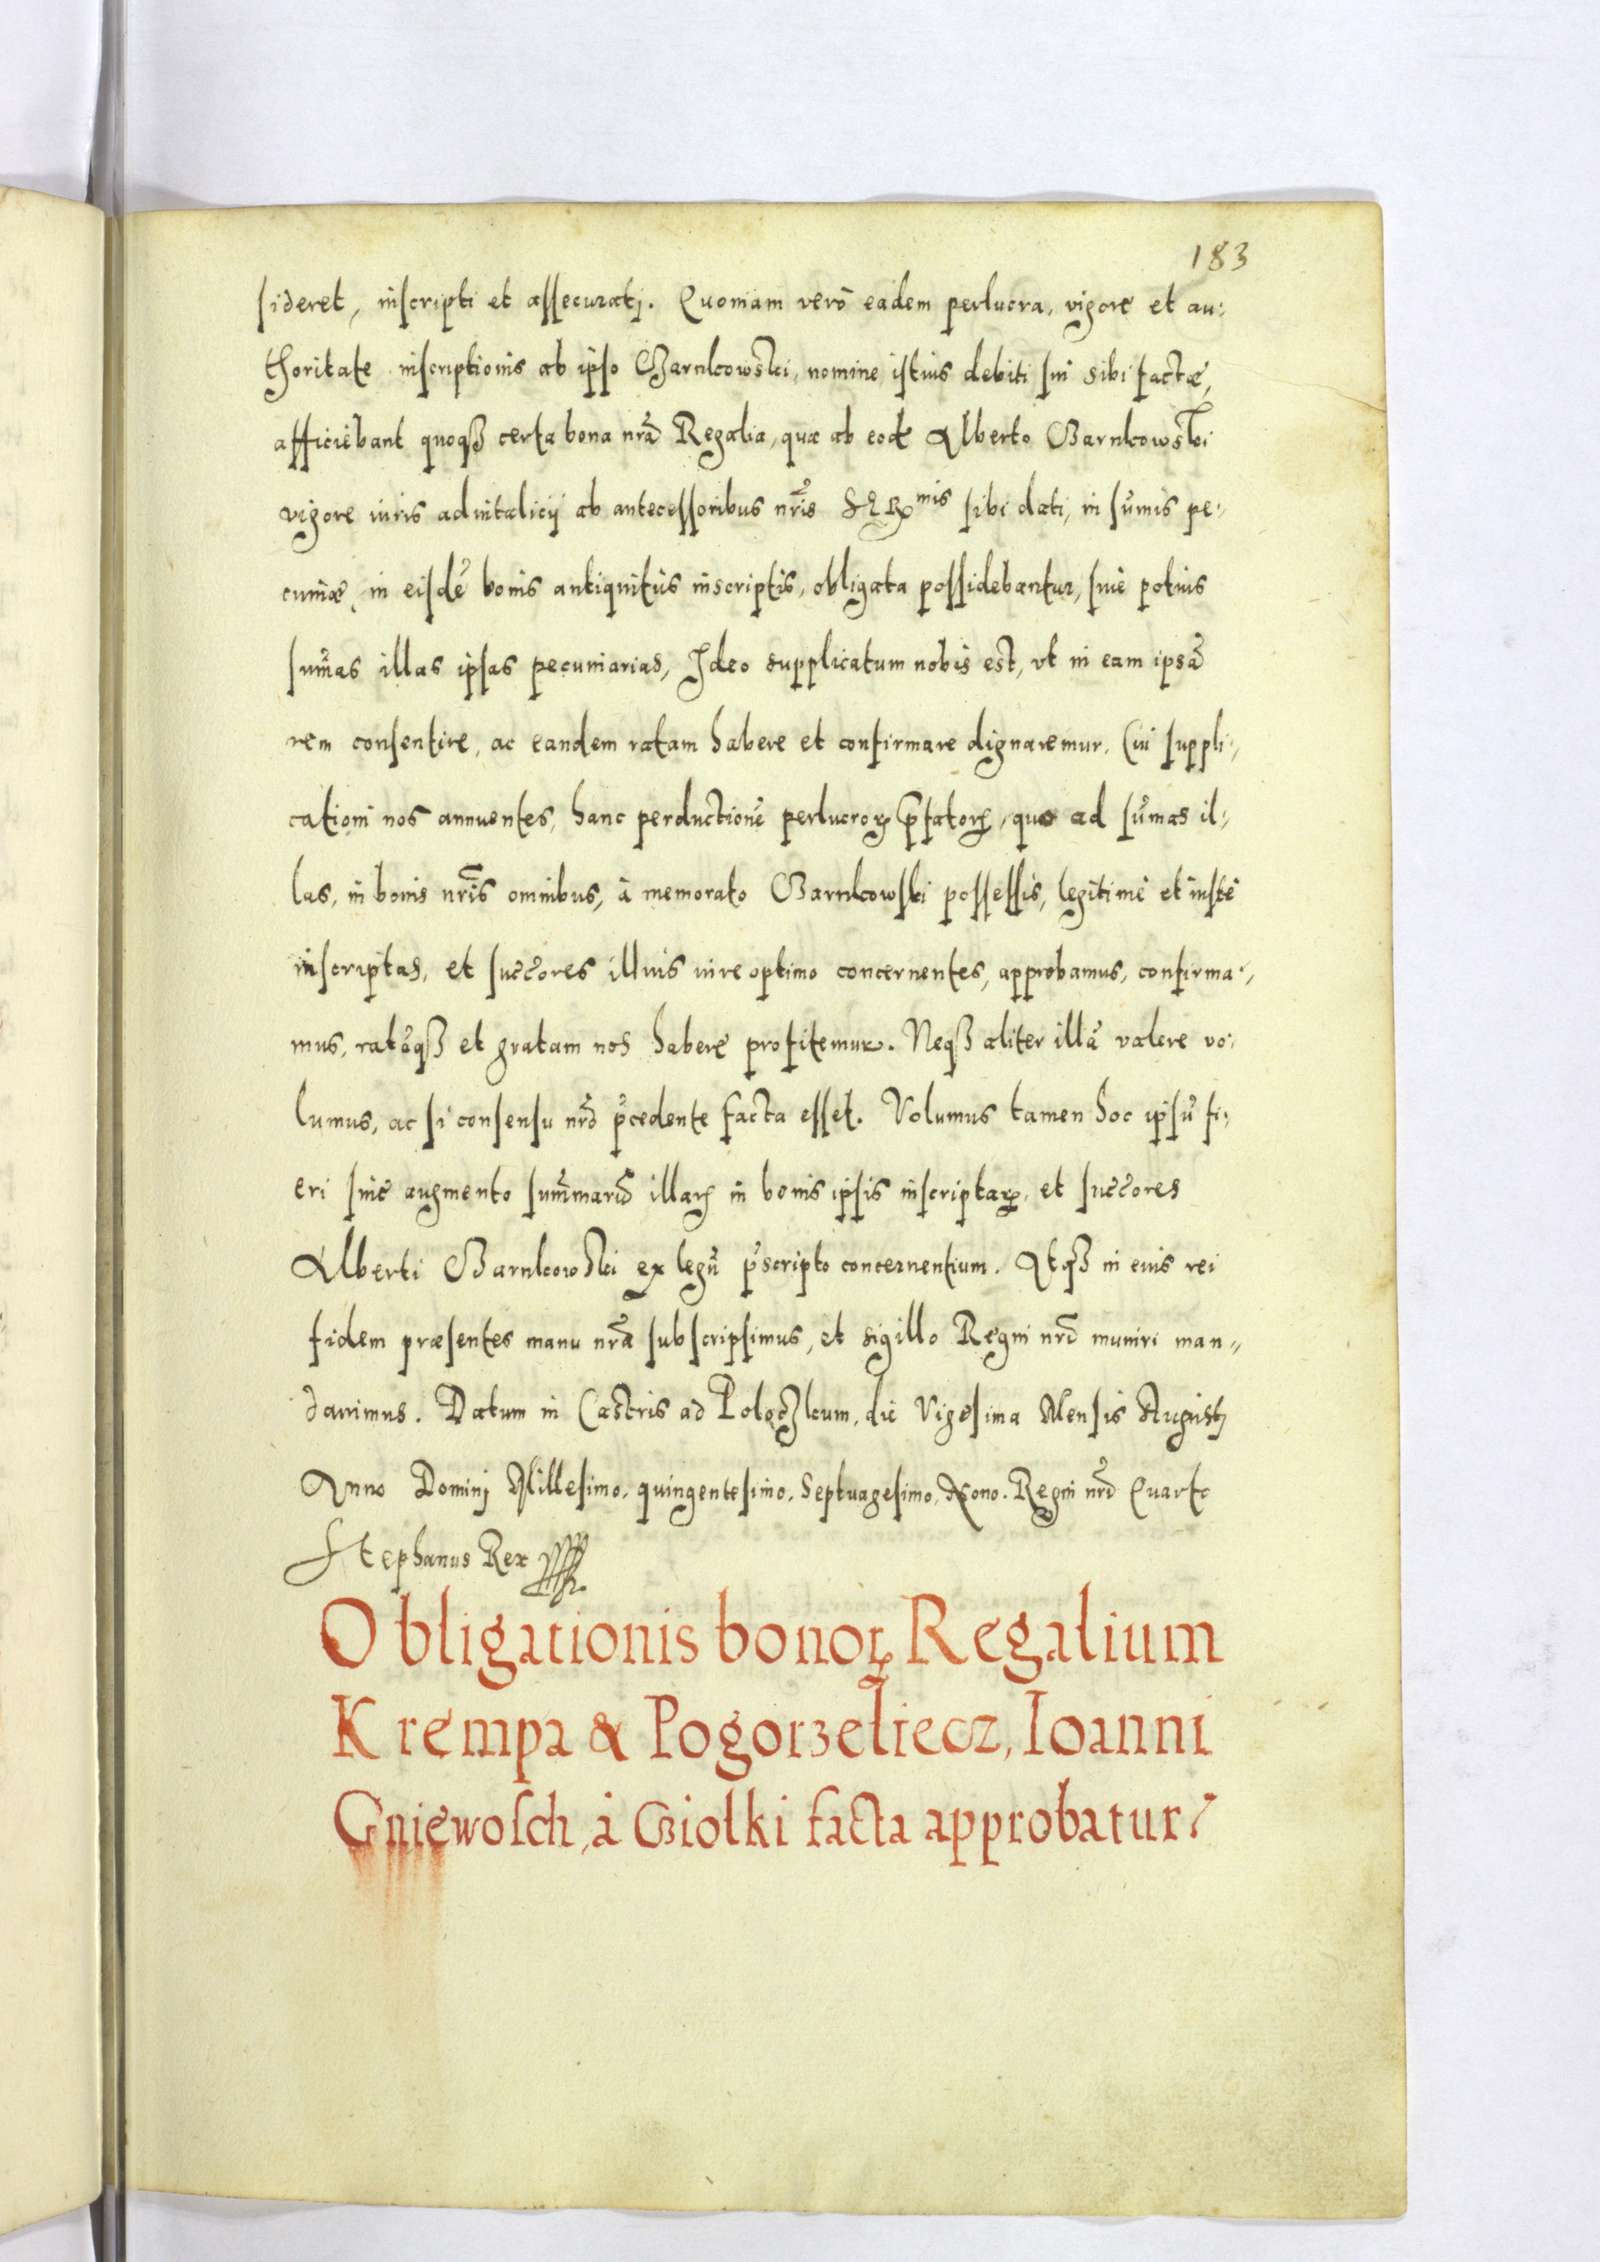 183
sideret, inscripti et assecurati. Quoniam verò eadem perlucra, vigore et au-
thoritate inscriptionis ab ipso Barnkowski, nomine istius debiti sui sibi factæ,
afficiebant quoqȝ certa bona nrã Regalia, quæ ab eodẽ Alberto Barnkowski
vigore iuris aduitalicij ab antecessoribus nrĩs sibi dati, in sum̃is pe-
cuniæ, in eisdẽ bonis antiquitùs inscriptis, obligata possidebantur, siue potius
sum̃as illas ipsas pecuniarias, Ideo supplicatum nobis est, vt in eam ipsã
rem consentire, ac eandem ratam habere et confirmare dignaremur. Cui suppli-
cationi nos annuentes, hanc perductionẽ perlucroꝝ p̃fatoꝝ, quo ad sum̃as il-
las, in bonis nrĩs omnibus, à memorato Barnkowski possessis, legitimè et iustè
inscriptas, et succ̃ores illius iure optimo concernentes, approbamus, confirma-
mus, ratãqȝ et gratam nos habere profitemur. Neqȝ aliter illã valere vo-
lumus, ac si consensu nrõ p̃cedente facta esset. Volumus tamen hoc ipsũ fi-
eri sine augmento sum̃marũ illaꝝ in bonis ipsis inscriptaꝝ, et succ̃ores
Alberti Barnkowski ex legũ p̃scripto concernentium. Atqȝ in euis rei
fidem præsentes manu nrã subscripsimus, et sigillo Regni nrĩ muniri man-
dauimus. Datum in Castris ad Poloczkum, die Vigesima Mensis Augusti
Anno Domini Millesimo, quingentesimo, Septuagesimo, Nono. Regni nrĩ Quarto
Stephanus Rex
Obligationis bonoꝝ Regalium
Krempa & Pogorzeliecz, Ioanni
Gniewosch, à Cziolki facta approbatur